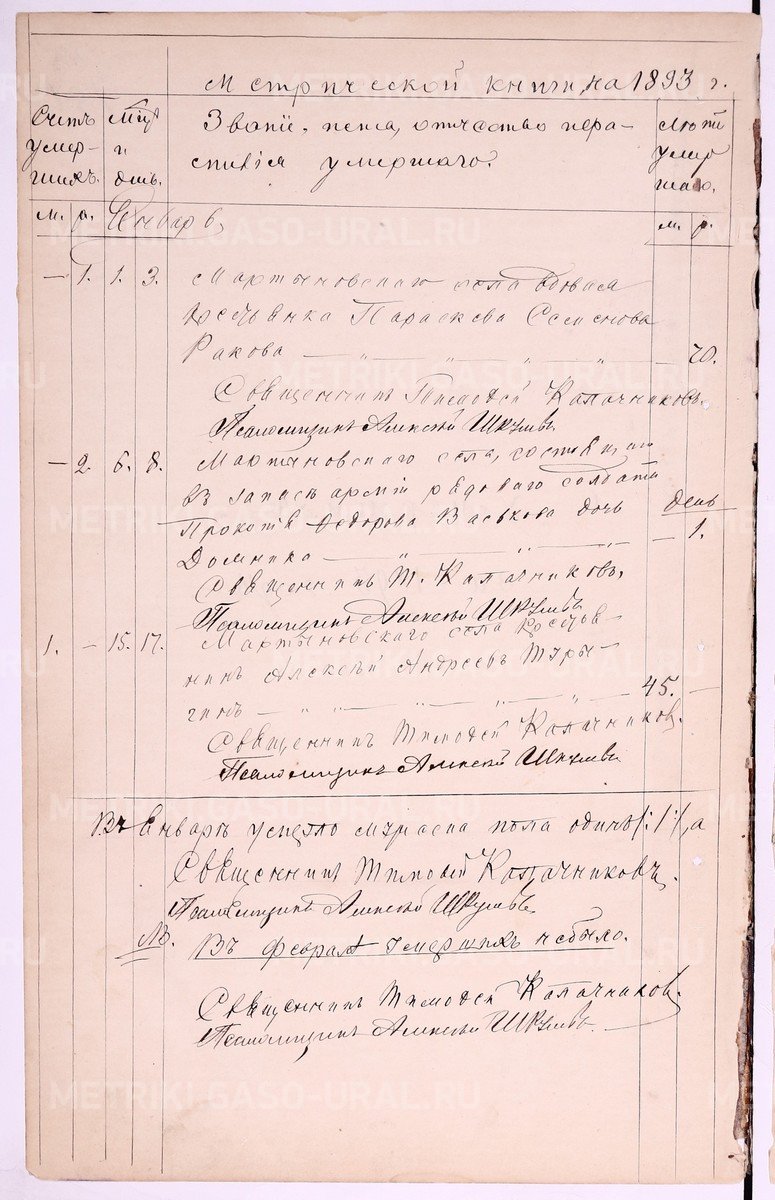 Метрической книги, на 1893 г.
Счетъ умер- шихъ.
Мѣсяцъ и день.
Званіе, имя, отчество и фа-
милія умершаго.
Лѣта умер шаго.
м. р. Январь, м. р.
— 1. 1. 3. Мартыновскаго села вдовая
крестьянка Параскева Семенова
Ракова — „ — „ — „ — „ — 70.
Священникъ Тимофей Калачниковъ.
Псаломщикъ Алексѣй Шкулевъ
— 2. 6. 8. Мартыновскаго села,
въ запасѣ арміи рядоваго солдата
Прокопія Федорова Васькова дочь день
Домника — „ — „ — „ — 1.
Священникъ Т. Калачниковъ,
Псаломщикъ Алексѣй Шкулевъ
1. — 15. 17. Мартыновскаго села крестья-
нинъ Алексѣй Андреевъ Туры-
гинъ — „ — „ — „ — „ — „ — 45. —
Священникъ Тимофей Калачниковъ.
Псаломщикъ Алексѣй Шкулевъ
Въ Январѣ умерло мужеска пола одинъ /:1:/, а
Священникъ Тимофей Калачниковъ.
Псаломщикъ Алексѣй Шкулевъ
Въ февралѣ умершихъ небыло.
Священникъ Тимофей Калачниковъ.
Псаломщикъ Алексѣй Шкулевъ.
METRIKI-GASO-URAL.RU